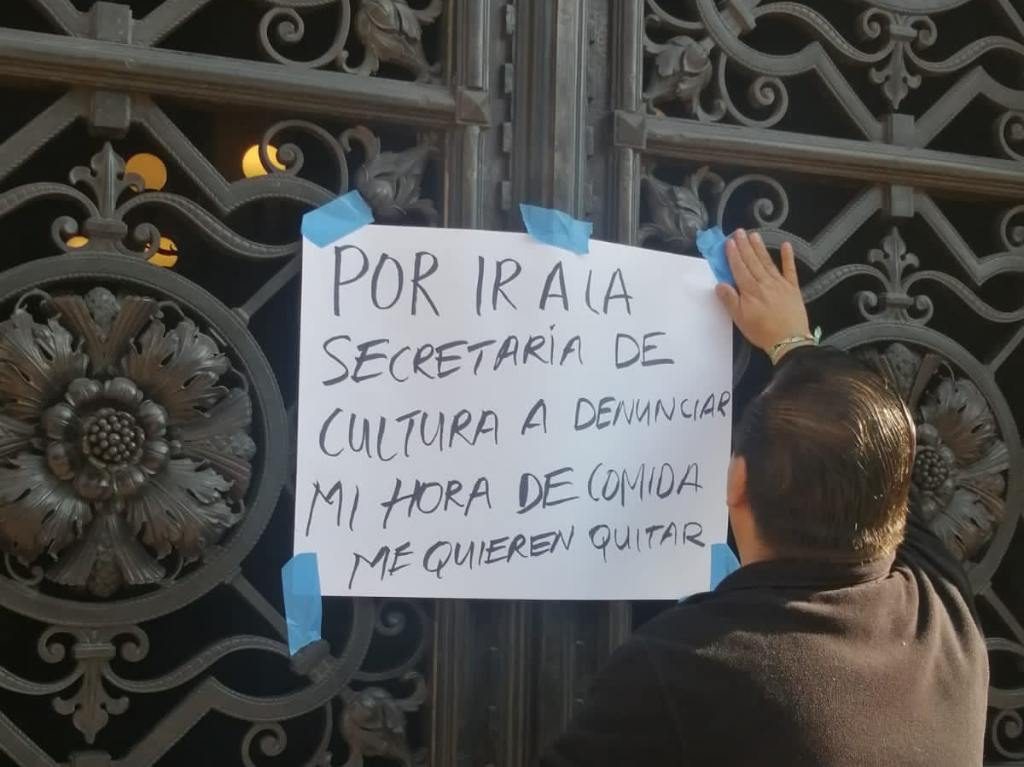 POR IR A LA
SECRETARÍA DE
CULTURA A DENUNCIAR
MI HORA DE COMIDA
ME QUIEREN QUITAR